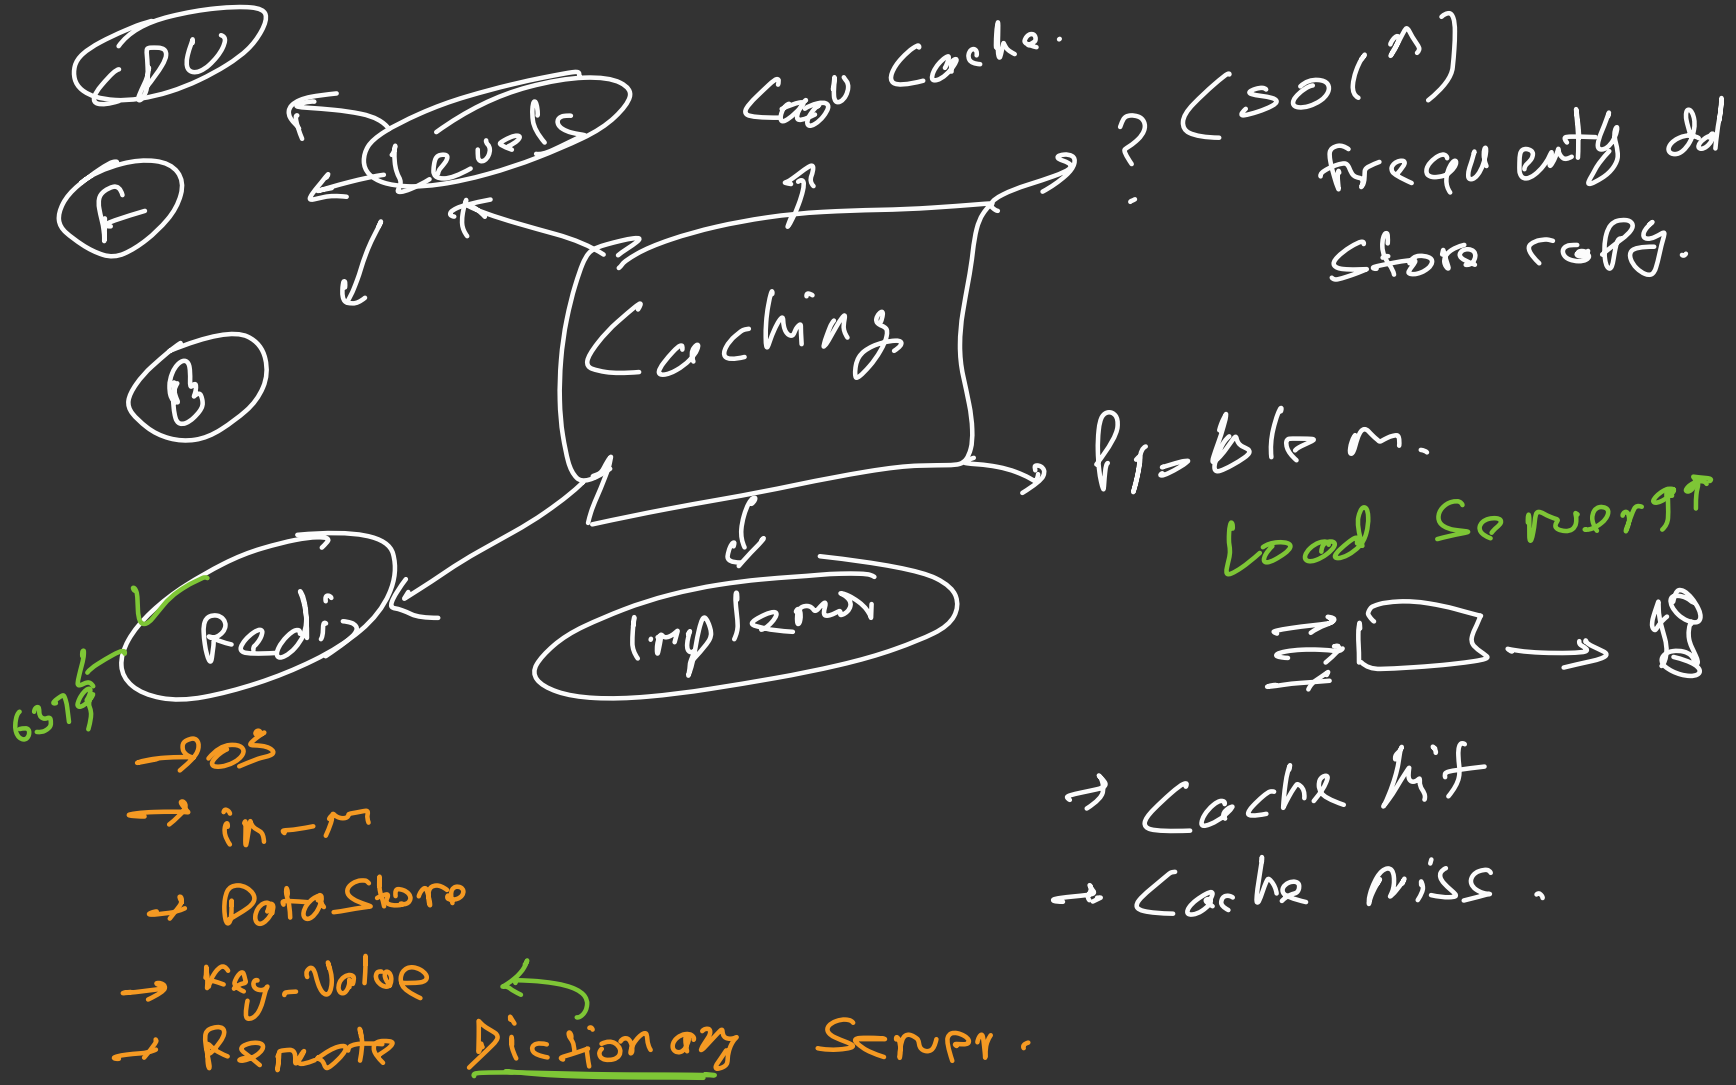 CPU
Levels
F
B
Cache.
?
frequently
store copy.
Caching
Problem.
Load Server ↑↑
Redis
6379
Implemen
→ OS
→ in-m
→ Data Store
→ Key-Value
→ Remote Dictionary Server.
→ Cache hit
→ Cache Miss.